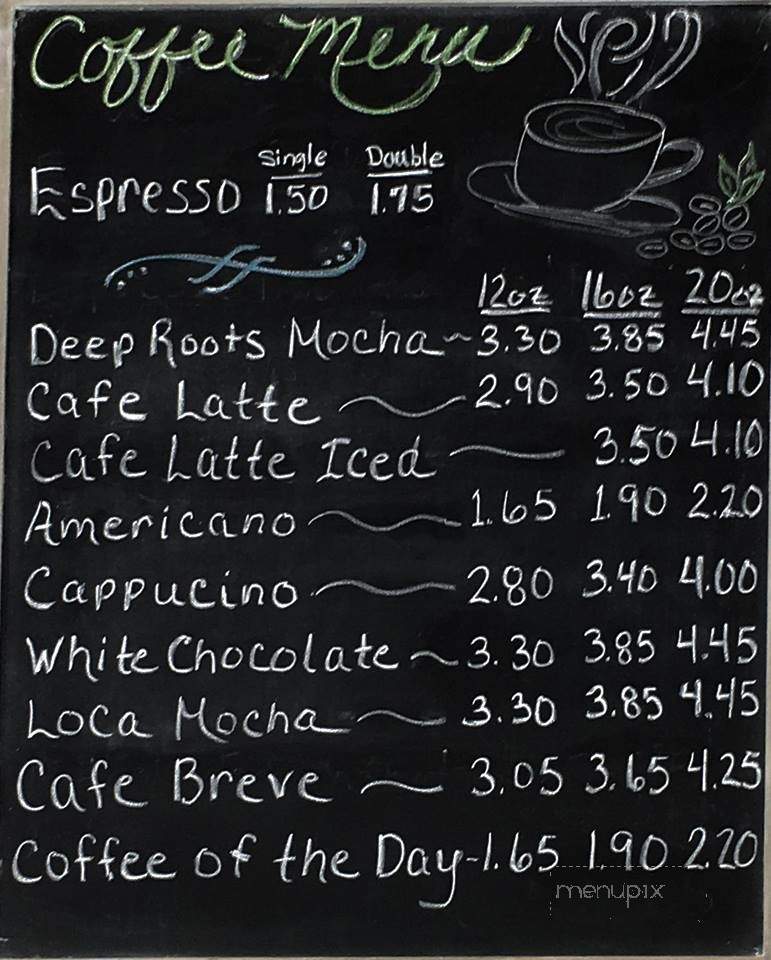 Coffee Menu
Single Double
Espresso 1.50 1.75
12oz 16oz 20oz
Deep Roots Mocha~3.30 3.85 4.45
Cafe Latte ~ 2.90 3.50 4.10
Cafe Latte Iced ~ 3.50 4.10
Americano ~ 1.65 1.90 2.20
Cappucino ~ 2.80 3.40 4.00
White Chocolate ~ 3.30 3.85 4.45
Loca Mocha ~ 3.30 3.85 4.45
Cafe Breve ~ 3.05 3.65 4.25
Coffee of the Day-1.65 1.90 2.20
menupix